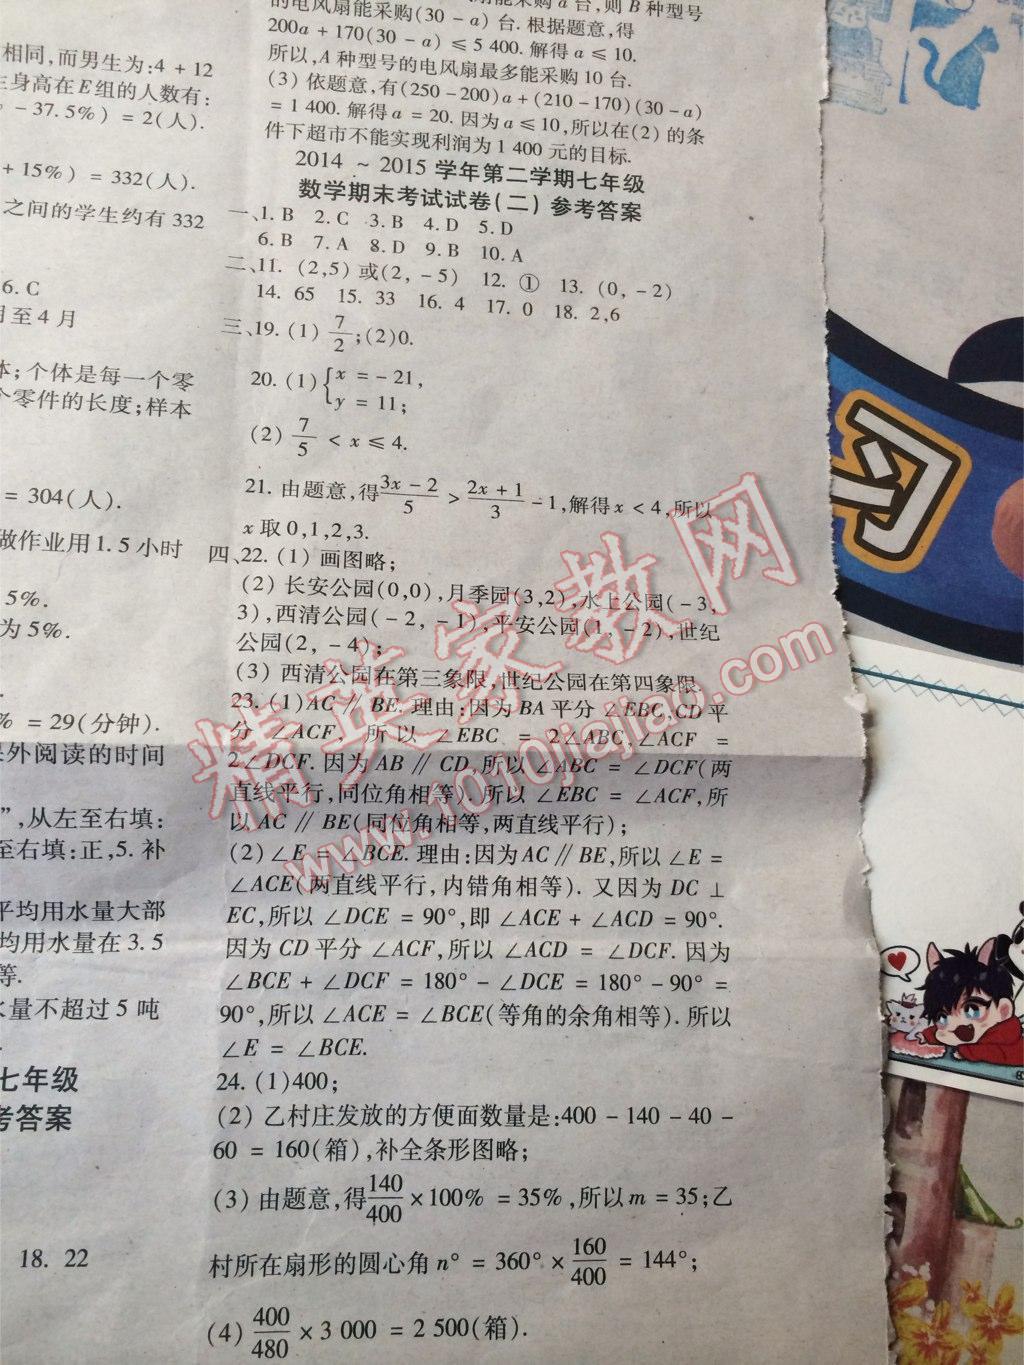 相同,而男生为:4 + 12
身高在E组的人数有:
- 37.5%) = 2(人).
+ 15%) = 332(人).
之间的学生约有 332
6. C
至 4 月
体;个体是每一个零
个零件的长度;样本
= 304(人).
做作业用 1.5 小时
5%.
为 5%.
% = 29(分钟).
外阅读的时间
”,从左至右填:
至右填:正,5. 补
平均用水量大部
均用水量在 3.5
等.
水量不超过 5 吨
七年级
考答案
18. 22
的电风扇能采购(30 - a) 台. 根据题意,得
200a + 170(30 - a) ≤ 5 400. 解得 a ≤ 10.
所以,A 种型号的电风扇最多能采购 10 台.
(3) 依题意,有(250 - 200)a + (210 - 170)(30 - a)
= 1 400. 解得 a = 20. 因为 a ≤ 10,所以在(2) 的条
件下超市不能实现利润为 1 400 元的目标.
2014 ~ 2015 学年第二学期七年级
数学期末考试试卷(二) 参考答案
一、1. B 2. C 3. B 4. D 5. D
6. B 7. A 8. D 9. B 10. A
二、11. (2,5) 或(2, - 5) 12. ① 13. (0, - 2)
14. 65 15. 33 16. 4 17. 0 18. 2,6
三、19. (1) 7/2;(2)0.
20. (1){x = - 21,
y = 11;
(2) 7/5 < x ≤ 4.
21. 由题意,得(3x - 2)/5 > (2x + 1)/3 - 1,解得 x < 4,所以
x 取 0,1,2,3.
四、22. (1) 画图略;
(2) 长安公园(0,0),月季园(3,2),水上公园( - 3,
3),西清公园( - 2, - 1),平安公园(1, - 2),世纪
公园(2, - 4);
(3) 西清公园在第三象限,世纪公园在第四象限.
23. (1)AC ∥ BE. 理由:因为 BA 平分 ∠EBC,CD 平
分 ∠ACF, 所以 ∠EBC = 2∠ABC,∠ACF =
2∠DCF. 因为 AB ∥ CD,所以 ∠ABC = ∠DCF(两
直线平行,同位角相等). 所以 ∠EBC = ∠ACF,所
以 AC ∥ BE(同位角相等,两直线平行);
(2) ∠E = ∠BCE. 理由:因为 AC ∥ BE,所以 ∠E =
∠ACE(两直线平行,内错角相等). 又因为 DC ⊥
EC,所以 ∠DCE = 90°,即 ∠ACE + ∠ACD = 90°.
因为 CD 平分 ∠ACF,所以 ∠ACD = ∠DCF. 因为
∠BCE + ∠DCF = 180° - ∠DCE = 180° - 90° =
90°,所以 ∠ACE = ∠BCE(等角的余角相等). 所以
∠E = ∠BCE.
24. (1)400;
(2) 乙村庄发放的方便面数量是:400 - 140 - 40 -
60 = 160(箱),补全条形图略;
(3) 由题意,得140/400 × 100% = 35%,所以 m = 35;乙
村所在扇形的圆心角 n° = 360° × 160/400 = 144°;
(4) 400/480 × 3 000 = 2 500(箱).
精英家教网
www.1010jiajiao.com